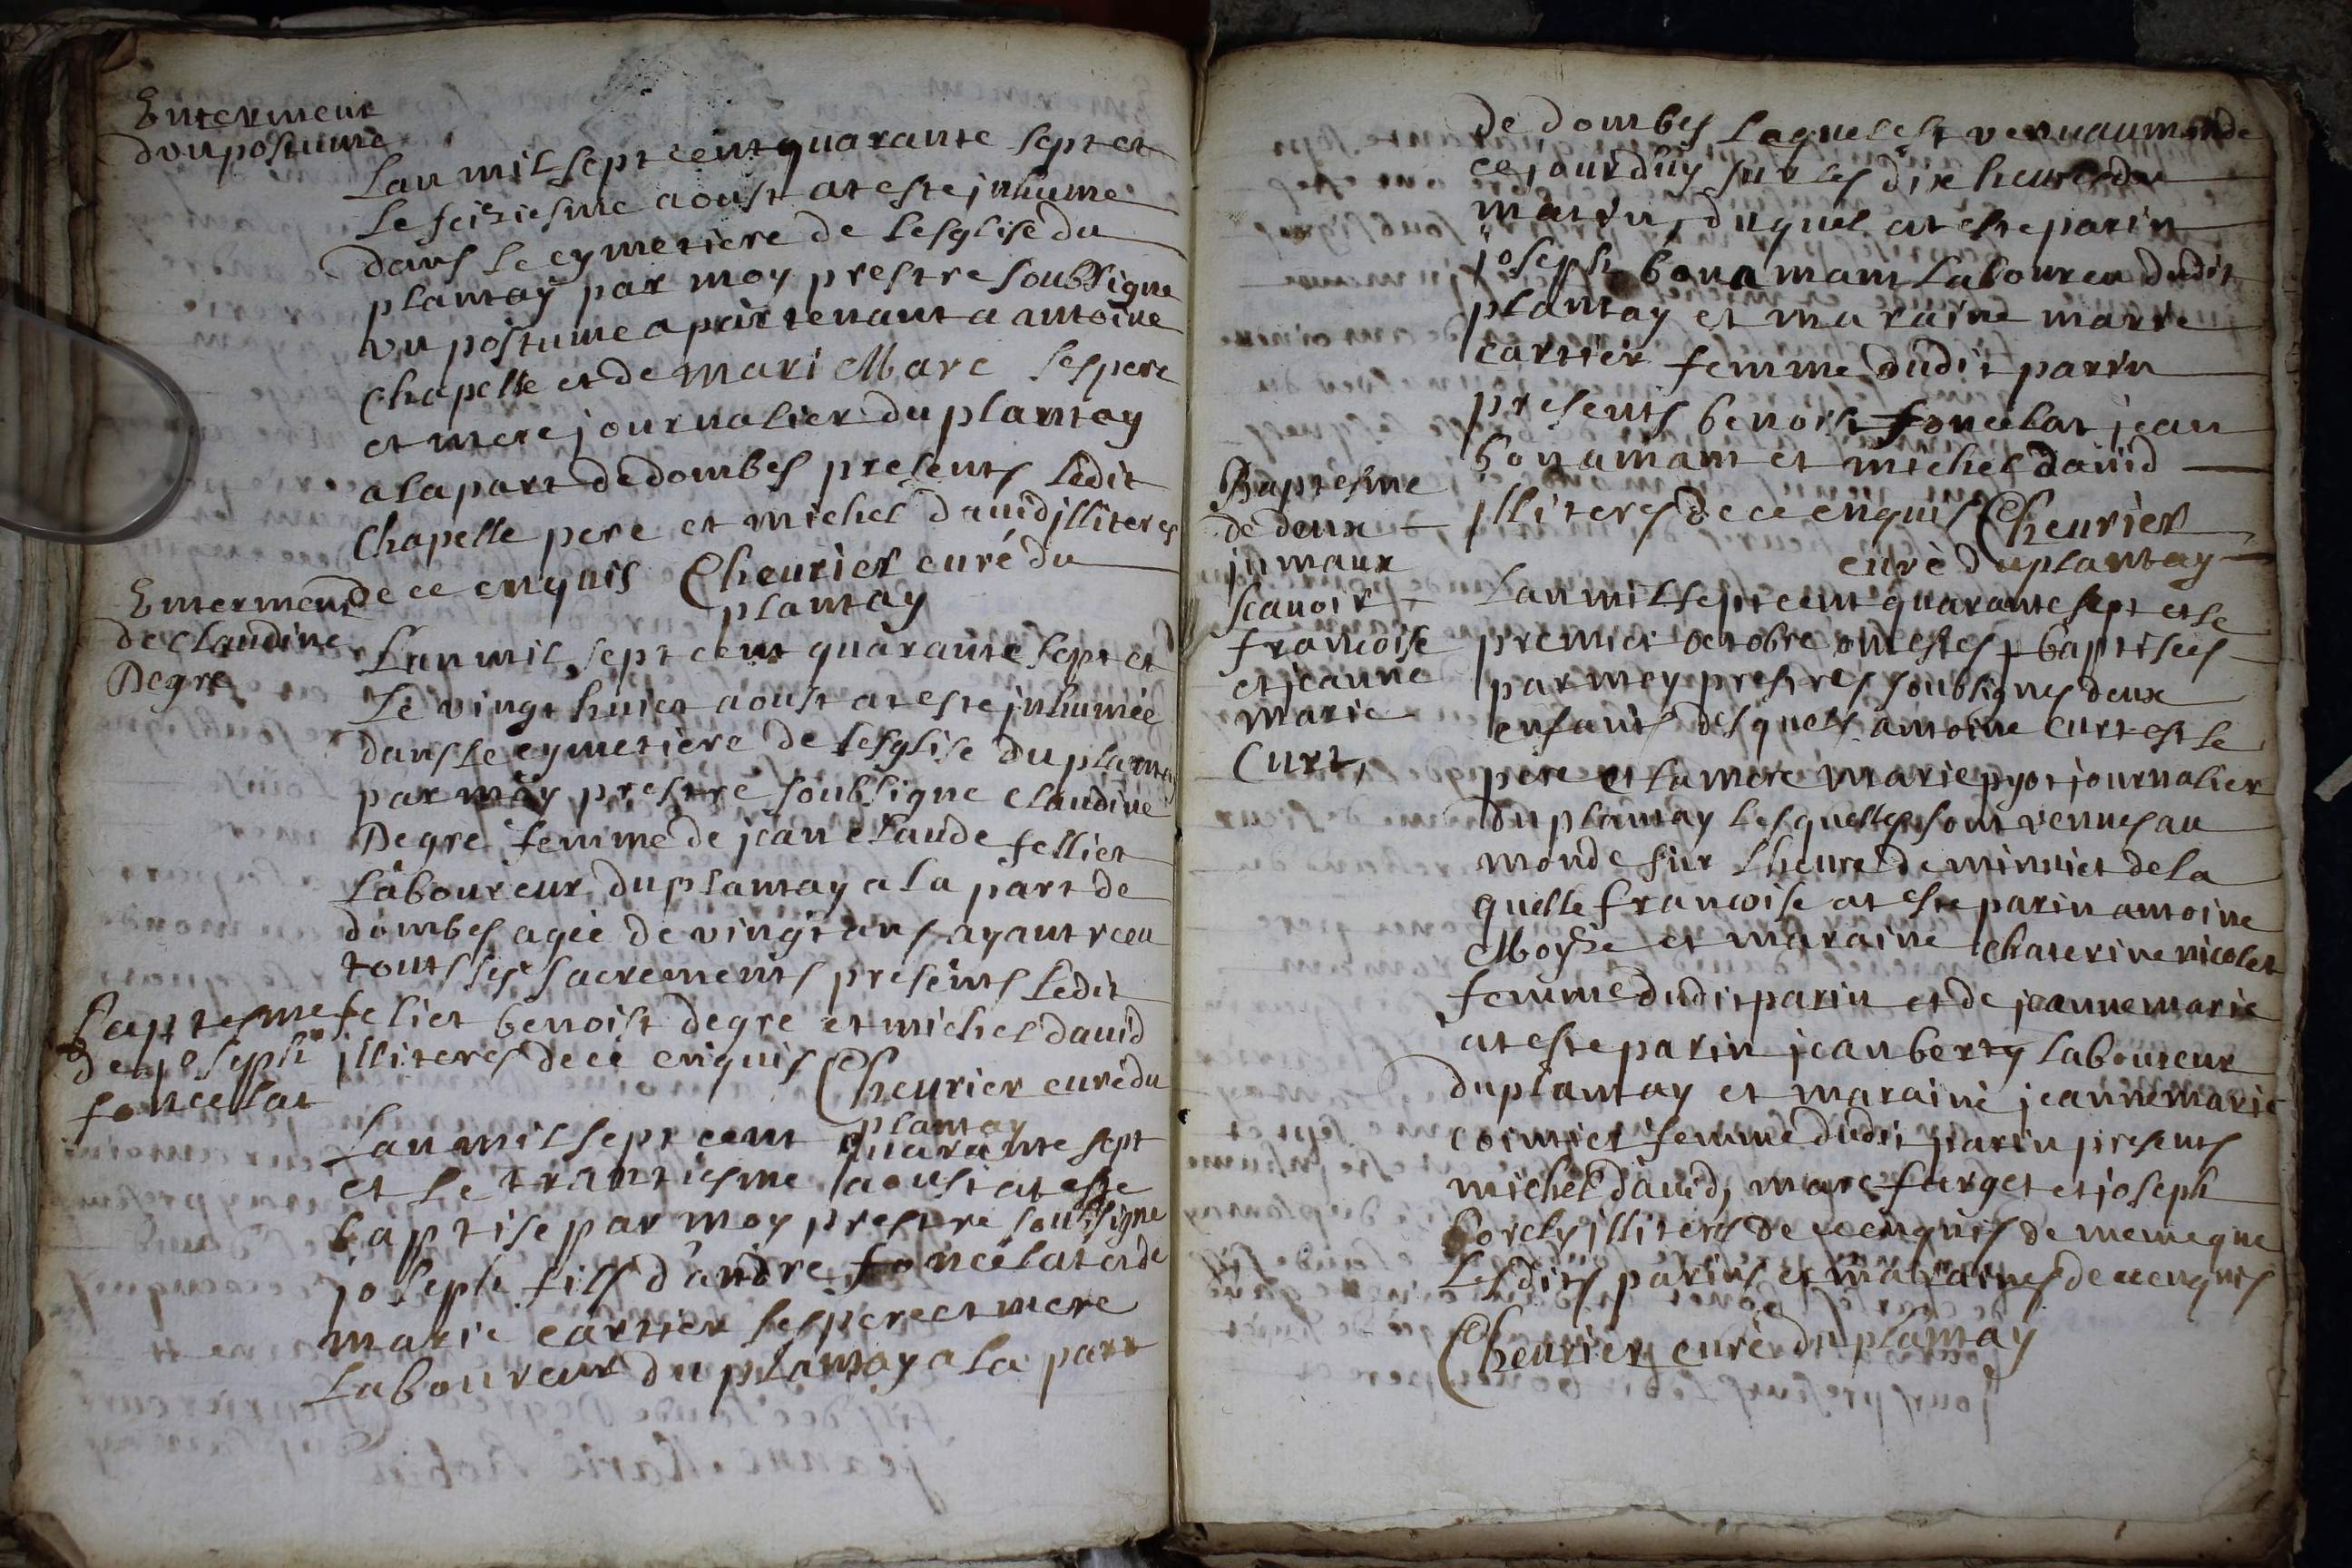 Enterment
dvn postume
Lan mil sept cent quarante sept et
le seiziesme aoust at este jnhume
dans le cymetiere de lesglise du
plantay par moy prestre soubsigne
vn postume apartenant a antoine
Chapelle et de mari Marc ses pere
et mere journalier du plantay
a la part de dombes presents ledit
Chapelle pere et michel dauid jlliteres
de ce enquis Cheurier curé du
plantay
Enterment
de Claudine
Degre
Lan mil sept cent quarante sept et
le vingt huict aoust at este jnhumée
dans le cymetiere de lesglise du plantay
par moy prestre soubsigne claudine
Degre femme de jean claude fellier
laboureur du plantay a la part de
dombes agée de vingt ans ayant receu
touts ses sacrements presents ledit
felier benoist degre et michel dauid
jlliteres de ce enquis Cheurier curé du
plantay
Baptesme
de joseph
foncelat
Lan mil sept cent quarante sept
et le trantiesme aoust at este
baptise par moy prestre soubsigne
joseph fils d'andre foncelat et de
marie cartier ses pere et mere
laboureur du plantay a la part
de dombes lequel est venu au monde
ce jourduy sur les dix heures du
matin, duquel at este parin
joseph bonamant laboureu dudit
plantay et maraine marie
cartier femme dudit parin
presents benoist foncelat jean
bonamant et michel dauid
jlliteres de ce enquis Cheurier
curè du plantay
Baptesme
de deux
jumaux
scauoir
francoise
et jeanne
marie
Curt,
Lan mil sept cent quarante sept et le
premier octobre ont estes baptisees
par moy prestres soubsignes deux
enfants desquels antoine curt est le
pere et la mere marie pyot journalier
du plantay lesquelles sont venues au
monde sur lheure de minuict de la
quelle francoise at este parin antoine
Moysse et maraine Chaterine nicolet
femme dudit parin et de jeanne marie
at este parin jean berty laboureur
du plantay et maraine jeanne marie
cormier femme dudit parin presents
michel dauid, marc farget et joseph
borely jlliteres de ce enquis de meme que
les dits parins et maraines de ce enquis
Cheurier curé du plantay